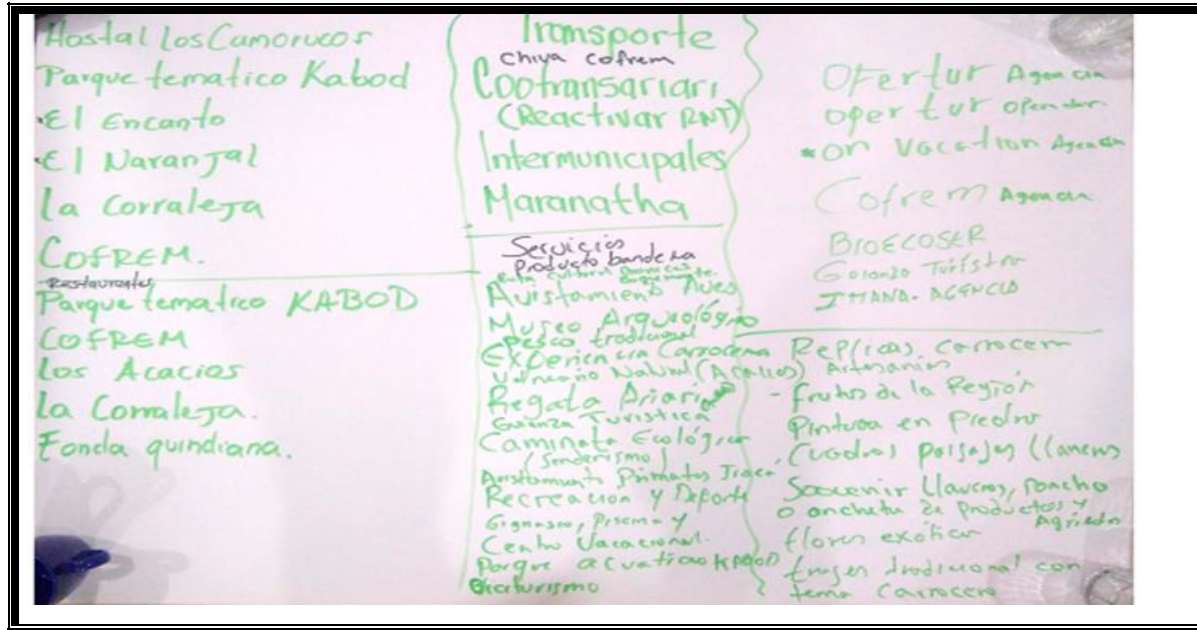 Hostal los Camorucos
Parque tematico Kabod
El Encanto
El Naranjal
la Corraleja
COFREM.
Restaurantes
Parque tematico KABOD
COFREM
Los Acacios
La Corraleja.
Fonda quindiana.
Transporte
Chiva Cofrem
Cootransariari
(Reactivar RNT)
Intermunicipales
Maranatha
Servicios
Producto bandera
Ruta Cultural
Avistamiento Aves
Museo Arqueológico
Pesca tradicional
Experiencia Carrocera
Natural (Acacios)
Regata Ariari
Turistica
Caminata Ecológica
(Senderismo)
Avistamiento Primates
Recreacion y Deporte
Gimnasio, Piscina y
Centro Vacacional.
Parque acuatico KABOD
Bicaturismo
OFertur Agencia
opertur operador
on Vacation Agencia
Cofrem Agencia
BIOECOSER
AGENCIA
Replicas. Carrocera
Artesanias
- frutos de la Región
Pintura en Piedra
Cuadros paisajes llaneros
Souvenir llaneros, Poncho
o ancheta de productos y
flores exóticas
tradicional con
tema Carrocero